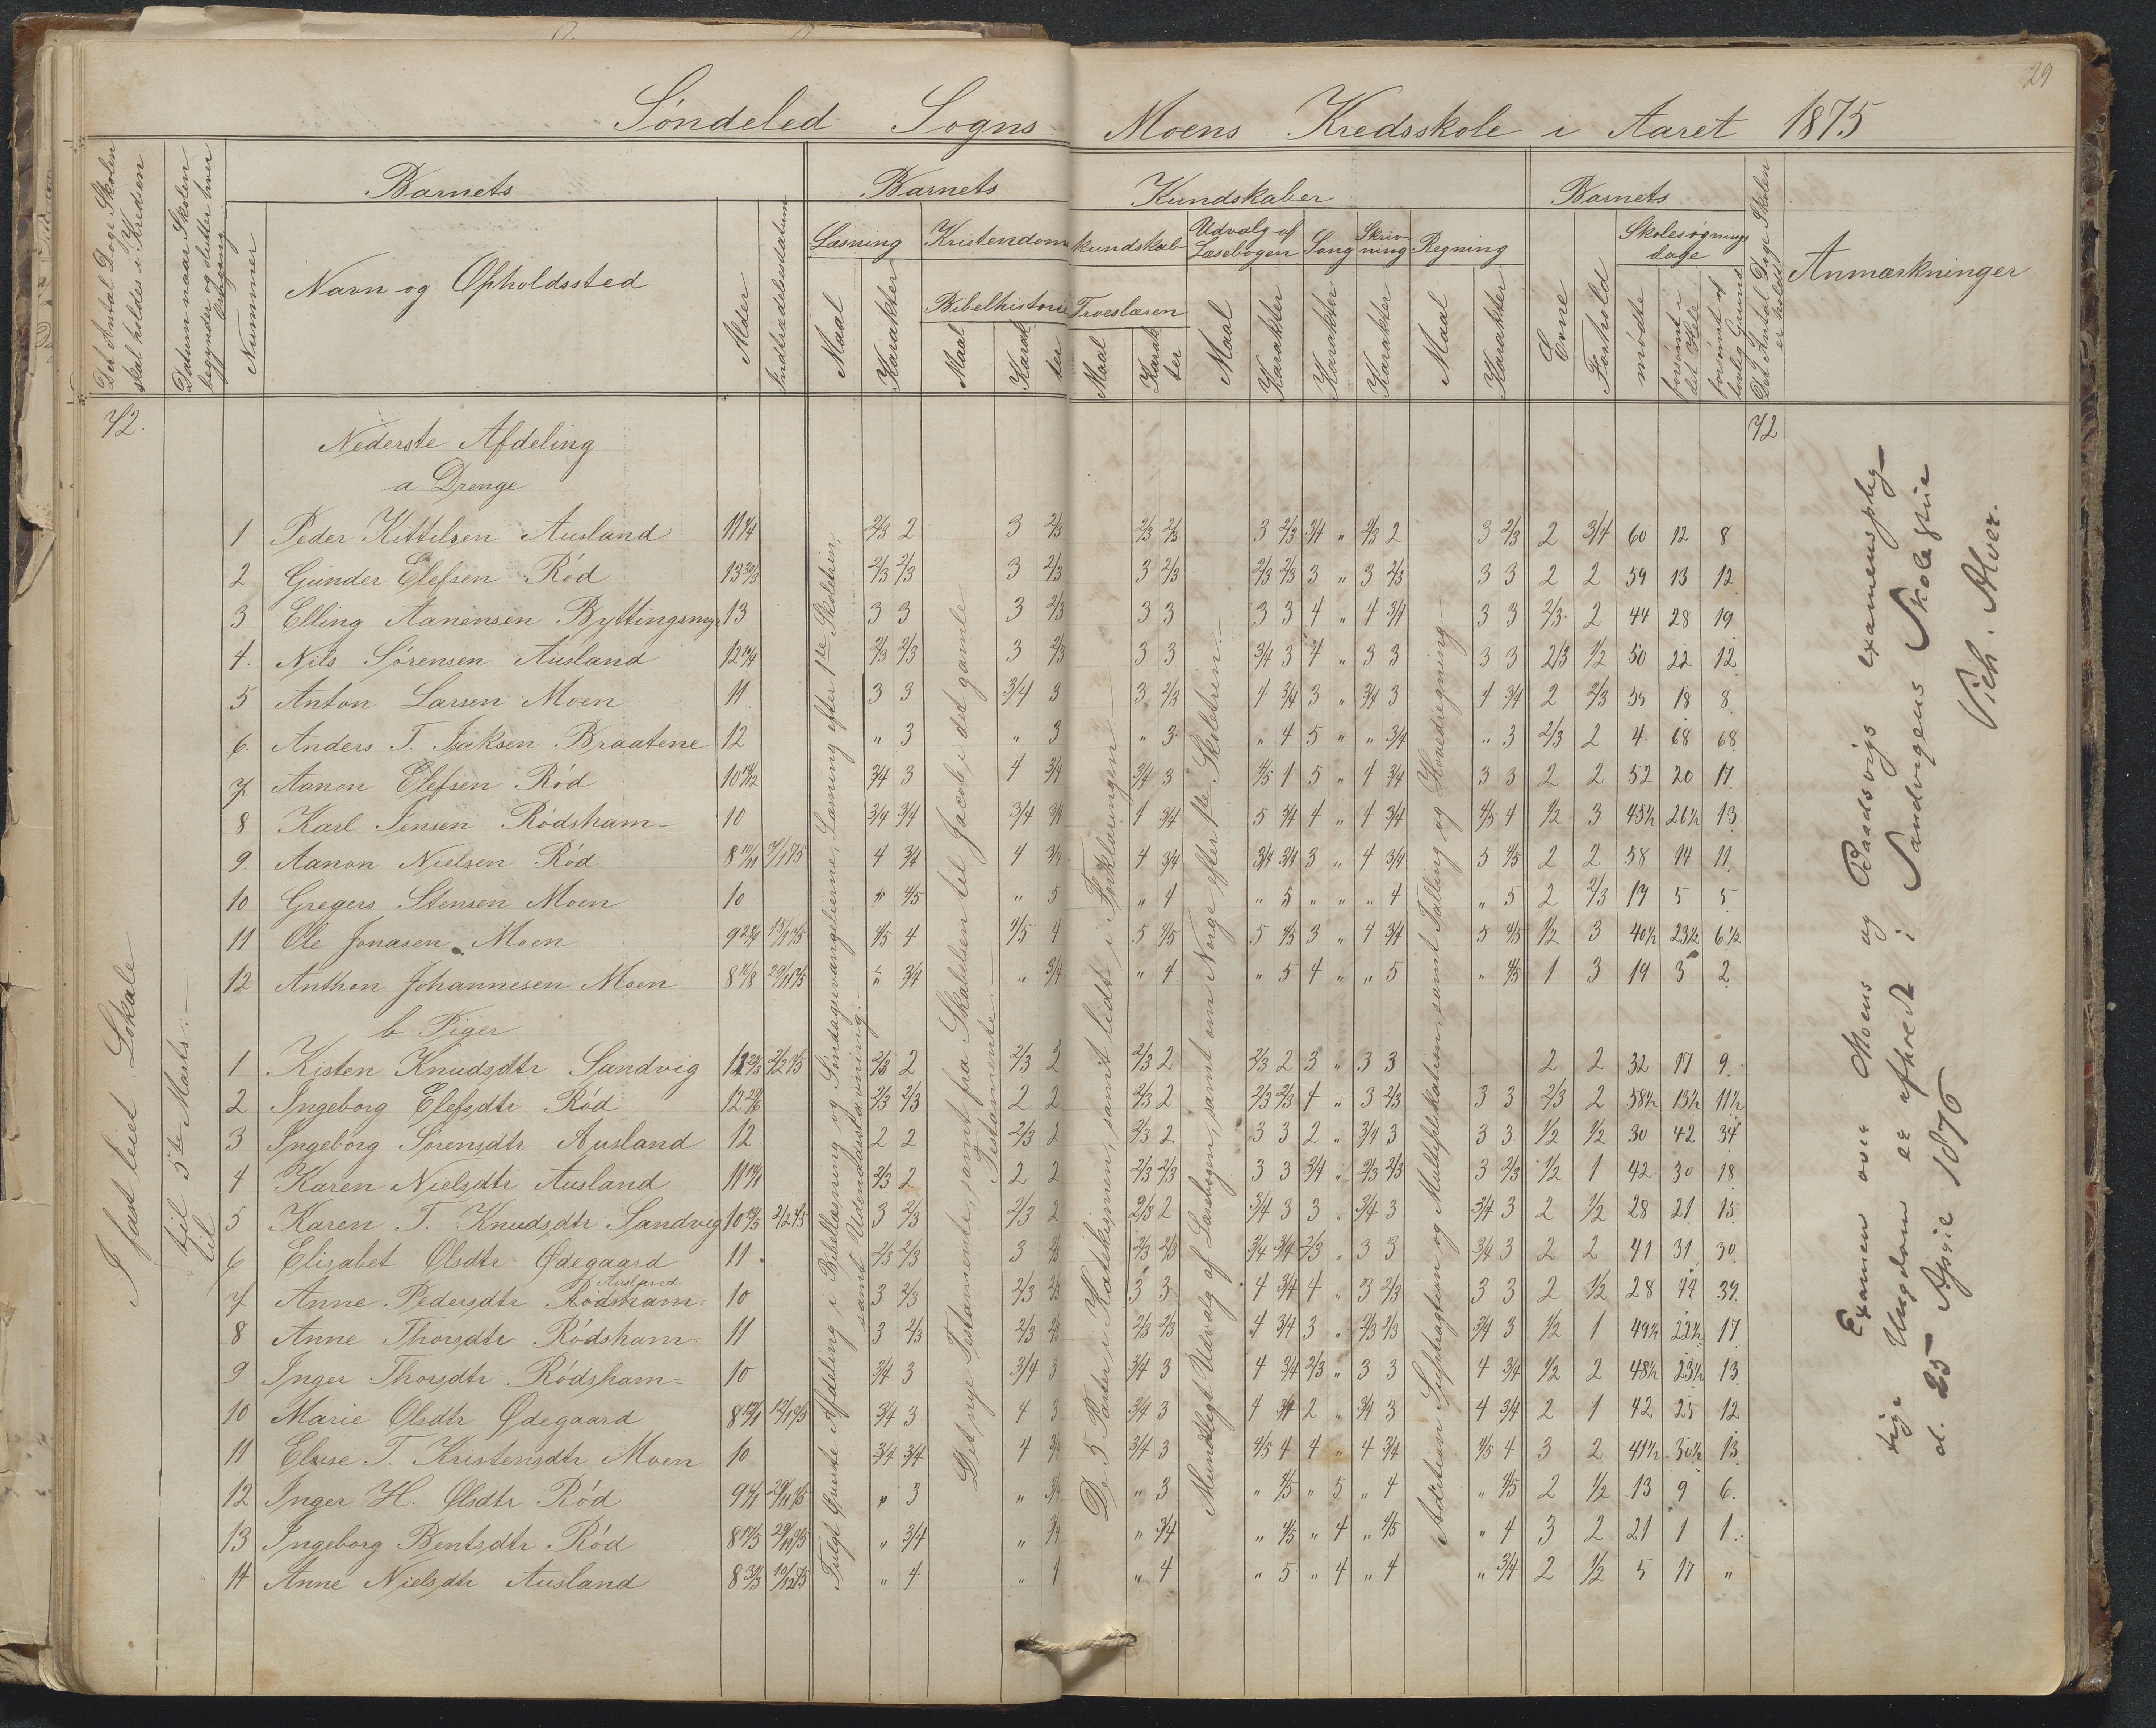 29
Søndeled Sogns Moens Kredsskole i Aaret 1875
Det Antal Dage Skolen
skal holdes i Kredsen
Datum naar Skolen
begynder og slutter hver
Omgang
Barnets
Nummer
Navn og Opholdssted
Alder
Indtrædelsesdatum
Barnets Kundskaber
Læsning
Maal
Karakter
Kristendomskundskab
Bibelhistorie
Maal
Karakter
Troeslæren
Maal
Karakter
Udvalg af
Læsebogen
Maal
Karakter
Sang
Karakter
Skrivning
Karakter
Regning
Maal
Karakter
Barnets
Evne
Forhold
Skolesøgningsdage
mødte
forsømt i
det Hele
forsømt af
lovlig Grund
Det Antal Dage Skolen
er holdt
Anmærkninger
72.
72
Nederste Afdeling
a Drenge
1 Peder Kittilsen Ausland 2/3 2 3 2/3 2/3 2/3 3 2/3 3/4 " 2/3 2 3 2/3 2 3/4 60 12 8
2 Gunder Elefsen Rød 2/3 2/3 3 2/3 3 2/3 2/3 2/3 3 " 3 2/3 3 3 2 2 59 13 12
3 Elling Aanensen Byttingsmyr 13 3 3 3 2/3 3 3 3 3 4 " 4 3/4 3 3 2/3 2 44 28 19
4. Nils Sørensen Ausland 2/3 2/3 3 2/3 3 3 3/4 3 4 " 3 3 3 3 2/3 1/2 50 22 12
5 Anton Larsen Moen 11 3 3 3/4 3 3 2/3 4 3/4 3 " 3/4 3 4 3/4 2 2/3 55 18 8
6. Anders T. Isaksen Braatene 12 " 3 " 3 " 3 " 4 5 " " 3/4 " 3 2/3 2 4 68 68
7 Aanon Elefsen Rød 3/4 3 4 3/4 3/4 3 4/5 4 5 " 4 3/4 3 3 2 2 52 20 17
8 Karl Jensen Rødsham 10 3/4 3/4 3/4 3/4 4 3/4 5 3/4 4 " 4 3/4 4/5 4 1/2 3 45½ 26½ 13
9. Aanon Nielsen Rød 4 3/4 4 3/4 4 3/4 3/4 3/4 3 " 4 3/4 5 4/5 2 2 58 14 11
10 Gregers Stensen Moen 10 " 4/5 " 5 " 4 " 5 " " " 4 " 5 2 2/3 17 5 5
11 Ole Jonasen Moen 4/5 4 4/5 4 5 4/5 5 4/5 3 " 4 3/4 5 4/5 1/2 3 40½ 23½ 6½
12 Anthon Johannesen Moen " 3/4 " 3/4 " 4 " 5 4 " " 5 " 4/5 1 3 19 3 2
b Piger
1 Kisten Knudsdtr Sandvig 2/3 2 2/3 2 2/3 2 2/3 2 3 " 3 3 2 2 32 17 9
2 Ingeborg Elefsdtr Rød 2/3 2/3 2 2 2/3 2 2/3 2/3 4 " 3 2/3 3 3 2/3 2 58½ 13½ 11½
3 Ingeborg Sørensdtr Ausland 12 2 2 2/3 2 2/3 2 3 3 2 " 3/4 3 3 3 1/2 1/2 30 42 34
4 Karen Nielsdtr Ausland 2/3 2 2 2 2/3 2/3 3 3 3/4 " 2/3 2/3 3 2/3 1/2 1 42 30 18
5 Karen T. Knudsdtr Sandvig 3 2/3 2/3 2 2/3 2 3/4 3 3 " 3/4 3 3/4 3 2 1/2 28 21 15
6 Elisabet Olsdtr Ødegaard 11 2/3 2/3 3 2/3 2/3 2/3 3/4 3/4 2/3 " 3 3 3/4 3 2 2 41 31 30
Ausland
7 Anne Pedersdtr Rødsham 10 3 2/3 2/3 2/3 3 3 4 3/4 4 " 3 2/3 3 3 2 1/2 28 44 39
8 Anne Thorsdtr Rødsham 11 3 2/3 2/3 2/3 2/3 2/3 4 3/4 3 " 2/3 2/3 3/4 3 1/2 1 49½ 22½ 17
9 Inger Thorsdtr Rødsham 10 3/4 3 3/4 3 3/4 3 4 3/4 2/3 " 3 3 4 3/4 1/2 2 48½ 23½ 13
10 Marie Olsdtr Ødegaard 3/4 3 4 3 3/4 3 4 3/4 2 " 3/4 3 4 3/4 2 1 42 25 12
11 Eluse T. Kristensdtr Moen 10 3/4 3/4 4 3/4 3/4 3 4/5 4 4 " 4 3/4 4/5 4 3 2 41½ 30½ 13
12 Inger H. Olsdtr Rød " 3 " 3/4 " 3 " 4/5 " 5 " 4 " 4/5 2 1/2 13 9 6
13 Ingeborg Bentsdtr Rød " 3/4 " 3/4 " 3/4 " 4/5 " 4 " 4/5 " 4 3 2 21 1 1
14 Anne Nielsdtr Ausland " 4 " 4 " 4 " 5 " 4 " 4 " 3/4 2 1/2 5 17 "
I fast leiet Lokale
til 5te Marts.
til
Fulgt Øverste Afdeling i Bibellæsning og Søndagsevangelierne, Læsning efter 1te Skoletrin,
samt Udenadsstavning.
Det nye Testamente, samt fra Skabelsen til Jacob i det gamle
Testamente
De 5 Parter i Katekismen, samt lidt i Forklaringen
Mundtligt Udvalg af Læsebogen, samt om Norge efter 1te Skoletrin.
Adition Suptragtion og Multiplikation, samt Tælling og Hovedregning
Examen over Moens og Baadsvigs examenspligtige
Ungdom er afholdt i Sandvigens Skolestue
d. 25 April 1876